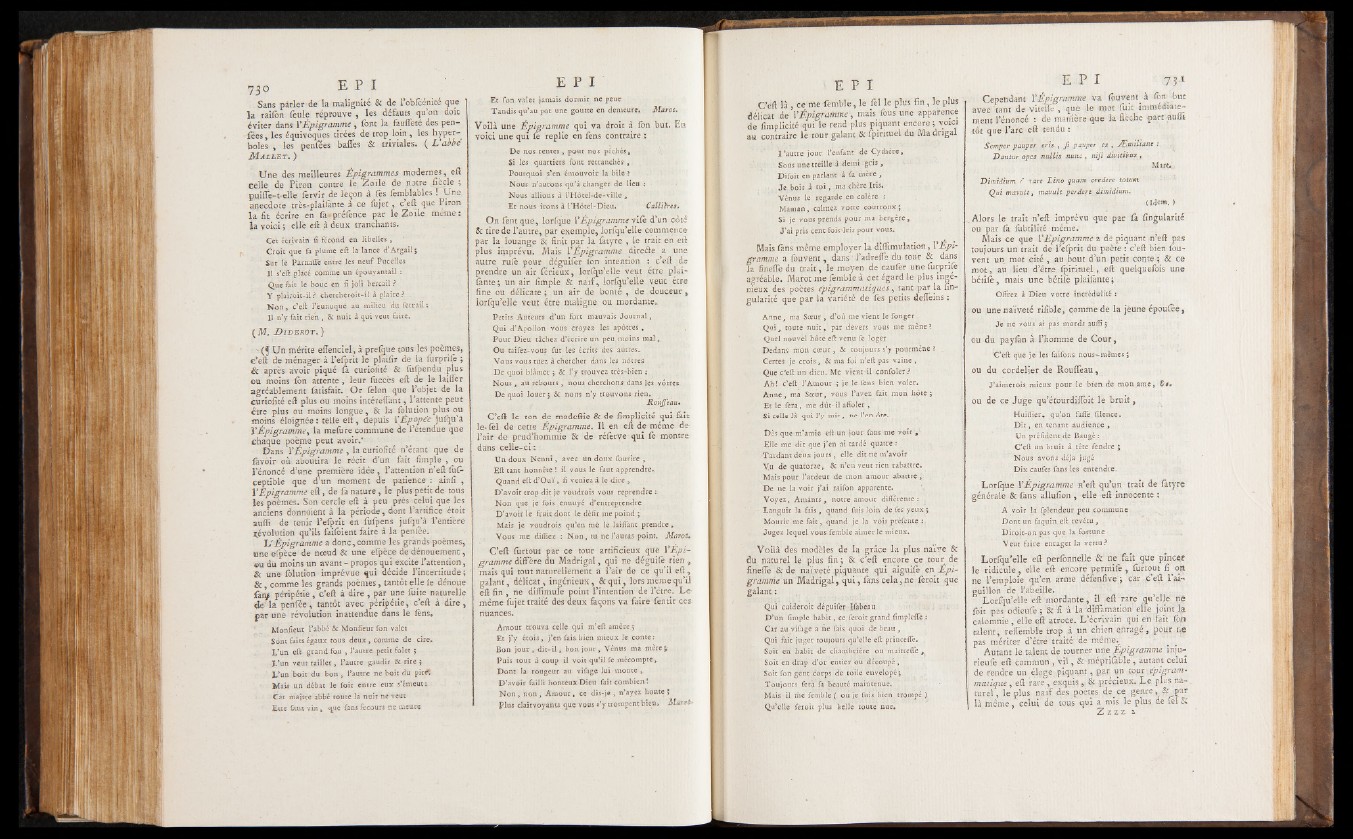 730 E P I
Sans parler de la malignité & de l'obſcénité que
la raiſon ſeule réprouve, les défauts qu'on doit
éviter dans l'Épigramme, ſont la fauſſeté des pen-
ſées, les équivoques tirées de trop loin, les hyper-
boles, les penſées baſſes & triviales. (L'abbé
MALLET.)
Une des meilleures Épigrammes modernes, eſt
celle de Piron contre le Zoïle de notre ſiecle ;
puiſſe-t-elle ſervir de leçon à ſes ſemblables ! Une
anecdote très-plaiſante à ce ſujet, c'eſt que Piron
la fit écrire en ſa préſence par le Zoïle même :
la voici ; elle eſt à deux tranchants.
Cet écrivain ſi fécond en libelles,
Croit que ſa plume eſt la lance d'Argail ;
Sur le Parnaſſe entre les neuf Pucelles
Il s'eſt placé comme un épouvantail :
Que fait le bouc en ſi joli bercail ?
Y plairoit-il ? chercheroit-il à plaire ?
Non, c'eſt l'eunuque au milieu du ſérail :
Il n'y fait rien, & nuit à qui veut faire.
(M. DIDEROT.)
(¶ Un mérite eſſenciel, à preſque tous les poèmes,
c'eſt de ménager à l'eſprit le plaiſir de la ſurpriſe ;
& après avoir piqué ſa curioſité & ſuſpendu plus
ou moins ſon attente, leur ſuccès eſt de le laiſſer
agréablement ſatisfait. Or ſelon que l'objet de la
curioſité eſt plus ou moins intéreſſant, l'attente peut
être plus ou moins longue, & la ſolution plus ou
moins éloignée : telle eſt, depuis l'Épopée juſqu'à
l'Épigramme, la meſure commune de l'étendue que
chaque poème peut avoir.
Dans l'Épigramme, la curioſité n'étant que de
ſavoir où aboutira le récit d'un fait ſimple, ou
l'énoncé d'une première idée, l'attention n'eſt ſuſ-
ceptible que d'un moment de patience : ainſi,
l'Épigramme eſt, de ſa nature, le plus petit de tous
les poèmes. Son cercle eſt à peu près celui que les
anciens donnoient à la période, dont l'artifice étoit
auſſi de tenir l'eſprit en ſuſpens juſqu'à l'entière
révolution qu'ils faiſoient faire à la penſée.
L'Épigramme a donc, comme les grands poèmes,
une eſpèce de nœud & une eſpèce de dénouement,
ou du moins un avant-propos qui excite l'attention,
& une ſolution imprévue qui décide l'incertitude ;
&, comme les grands poèmes, tantôt elle ſe dénoue
ſans péripétie, c'eſt à dire, par une ſuite naturelle
de la penſée, tantôt avec péripétie, c'eſt à dire,
par une révolution inattendue dans le ſens.
Monſieur l'abbé & Monſieur ſon valet
Sont faits égaux tous deux, comme de cire.
L'un eſt grand fou, l'autre petit folet ;
L'un veut railler, l'autre gaudir & rire ;
L'un boit du bon, l'autre ne boit du pire.
Mais un débat le ſoir entre eux s'émeut ;
Car maître abbé toute la nuit ne veut
Être ſans vin, que ſans ſecours ne meure
E P I
Et ſon valet jamais dormir ne peut
Tandis qu'au pot une goutte en demeure. Marot.
Voilà une Épigramme qui va droit à ſon but. En
voici une qui ſe replie en ſens contraire :
De nos rentes, pour nos péchés,
Si les quartiers ſont retranchés,
Pourquoi s'en émouvoir la bile ?
Nous n'aurons qu'à changer de lieu :
Nous allions à l'Hôtel-de-ville,
Et nous irons à l'Hôtel-Dieu. Cailliers.
On ſent que, lorſque l'Épigramme viſe d'un côté
& tire de l'autre, par exemple, lorſqu'elle commence
par la louange & finit par la ſatyre, le trait en eſt
plus imprévu. Mais l'Épigramme directe a une
autre ruſe pour déguiſer ſon intention : c'eſt de
prendre un air ſérieux, lorſqu'elle veut être plai-
ſante ; un air ſimple & naïf, lorſqu'elle veut être
fine ou délicate ; un air de bonté, de douceur,
lorſqu'elle veut être maligne ou mordante.
Petits Auteurs d'un fort mauvais Journal,
Qui d'Apollon vous croyez les apôtres,
Pour Dieu tâchez d'écrire un peu moins mal,
Ou taiſez-vous ſur les écrits des autres.
Vous vous tuez à chercher dans les nôtres
De quoi blâmer ; & l'y trouvez très-bien :
Nous, au rebours, nous cherchons dans les vôtres
De quoi louer ; & nous n'y trouvons rien.
Rouſſeau.
C'eſt le ton de modeſtie & de ſimplicité qui fait
le ſel de cette Épigramme. Il en eſt de même de
l'air de prud'hommie & de réſerve qui ſe montre
dans celle-ci :
Un doux Nenni, avec un doux ſourire,
Eſt tant honnête ! il vous le faut apprendre.
Quand eſt d'Oui, ſi veniez à le dire,
D'avoir trop dit je voudrois vous reprendre :
Non que je ſois ennuyé d'entreprendre
D'avoir le fruit dont le déſir me poind ;
Mais je voudrois qu'en me le laiſſant prendre,
Vous me diſiez : Non, tu ne l'auras point. Marot.
C'eſt ſurtout par ce tour artificieux que l'Épi-
gramme diffère du Madrigal, qui ne déguiſe rien,
mais qui tout naturellement a l'air de ce qu'il eſt,
galant, délicat, ingénieux, & qui, lors même qu'il
eſt fin, ne diſſimule point l'intention de l'être. Le
même ſujet traité des deux façons va faire ſentir ces
nuances.
Amour trouva celle qui m'eſt amère ;
Et j'y étois, j'en ſais bien mieux le conte :
Bon jour, dit-il, bon jour, Vénus ma mère ;
Puis tout à coup il voit qu'il ſe mécompte,
Dont la rougeur au viſage lui monte,
D'avoir failli honteux Dieu ſait combien !
Non, non, Amour, ce dis-je, n'ayez honte ;
Plus clairvoyants que vous s'y trompent bien. Marot.
E P I
C'eſt là, ce me ſemble, le ſel le plus fin, le plus
délicat de l'Épigramme, mais ſous une apparence
de ſimplicité qui le rend plus piquant encore ; voici
au contraire le tour galant & ſpirituel du Madrigal
L'autre jour l'enfant de Cythère,
Sous une treille à demi gris,
Diſoit en parlant à ſa mère,
Je bois à toi, ma chère Iris.
Vénus le regarde en colère :
Maman, calmez votre courroux ;
Si je vous prends pour ma bergère,
J'ai pris cent fois Iris pour vous.
Mais ſans même employer la diſſimulation, l'Épi-
gramme a ſouvent, dans l'adreſſe du tour & dans
la fineſſe du trait, le moyen de cauſer une ſurpriſe
agréable. Marot me ſemble à cet égard le plus ingé-
nieux des poètes épigrammatiques, tant par la ſin-
gularité que par la variété de ſes petits deſſeins :
Anne, ma Sœur, d'où me vient le ſonger
Qui, toute nuit, par devers vous me mène ?
Quel nouvel hôte eſt venu ſe loger
Dedans mon cœur, & toujours s'y pourmène ?
Certes je crois, & ma foi n'eſt pas vaine,
Que c'eſt un dieu. Me vient-il conſoler ?
Ah ! c'eſt l'Amour ; je le ſens bien voler.
Anne, ma Sœur, vous l'avez fait mon hôte ;
Et le ſera, me dût-il affoler,
Si celle-là qui l'y mit, ne l'en ôte.
Dès que m'amie eſt un jour ſans me voir,
Elle me dit que j'en ai tardé quatre :
Tardant deux jours, elle dit ne m'avoir
Vu de quatorze, & n'en veut rien rabattre.
Mais pour l'ardeur de mon amour abattre,
De ne la voir j'ai raiſon apparente.
Voyez, Amants, notre amour différente :
Languir la fais, quand ſuis loin de ſes yeux ;
Mourir me fait, quand je la vois préſente :
Jugez lequel vous ſemble aimer le mieux.
Voilà des modèles de la grâce la plus naïve &
du naturel le plus fin ; & c'eſt encore ce tour de
fineſſe & de naïveté piquante qui aiguiſe en Épi-
gramme un Madrigal, qui, ſans cela, ne ſeroit que
galant :
Qui cuideroit déguiſer Iſabeau
D'un ſimple habit, ce ſeroit grand ſimpleſſe :
Car au viſage a ne ſais quoi de beau,
Qui fait juger toujours qu'elle eſt princeſſe.
Soit en habit de chambrière ou maitreſſe,
Soit en drap d'or entier ou découpé,
Soit ſon gent corps de toile envelopé ;
Toujours ſera ſa beauté maintenue.
Mais il me ſemble (ou je ſuis bien trompé)
Qu'elle ſeroit plus belle toute nue.
E P I 731
Cependant l'Épigramme va ſouvent à ſon but
avec tant de viteſſe, que le mot ſuit immédiate-
ment l'énoncé : de manière que la flèche part auſſi
tôt que l'arc eſt tendu :
Semper pauper eris, ſi pauper es, Æmiliane :
Dantur opes nullis nunc, niſi divitibus,
Mart.
Dimidium donare Lino quàm credere totum
Qui mavolt, mavult perdere dimidium.
(Idem.)
Alors le trait n'eſt imprévu que par ſa ſingularité
ou par ſa ſubtilité même.
Mais ce que l'Épigramme a de piquant n'eſt pas
toujours un trait de l'eſprit du poète : c'eſt bien ſou-
vent un mot cité, au bout d'un petit conte ; & ce
mot, au lieu d'être ſpirituel, eſt quelquefois une
bétiſe, mais une bétiſe plaiſante ;
Offrez à Dieu votre incrédulité :
ou une naïveté riſible, comme de la jeune épouſée,
Je ne vous ai pas mordu auſſi ;
ou du payſan à l'homme de Cour,
C'eſt que je les faiſons nous-mêmes ;
ou du cordelier de Rouſſeau,
J'aimerois mieux pour le bien de mon ame, &c.
ou de ce Juge qu'étourdiſſoit le bruit,
Huiſſier, qu'on faſſe ſilence.
Dit, en tenant audience,
Un préſident de Baugé :
C'eſt un bruit à tête fendre ;
Nous avons déja jugé
Dix cauſes ſans les entendre.
Lorſque l'Épigramme n'eſt qu'un trait de ſatyre
générale & ſans alluſion, elle eſt innocente :
A voir la ſplendeur peu commune
Dont un faquin eſt revêtu,
Diroit-on pas que la fortune
Veut faire enrager la vertu ?
Lorſqu'elle eſt perſonnelle & ne fait que pincer
le ridicule, elle eſt encore permiſe, ſurtout ſi on
ne l'emploie qu'en arme défenſive ; car c'eſt l'ai-
guillon de l'abeille.
Lorſqu'elle eſt mordante, il eſt rare qu'elle ne
ſoit pas odieuſe ; & ſi à la diffamation elle joint la
calomnie, elle eſt atroce. L'écrivain qui en fait ſon
talent, reſſemble trop à un chien enragé, pour ne
pas mériter d'être traité de même.
Autant le talent de tourner une Épigramme inju-
rieuſe eſt commun, vil, & mépriſable, autant celui
de rendre un éloge piquant, par un tour épigram-
matique, eſt rare, exquis, & précieux. Le plus na-
turel, le plus naïf des poètes de ce genre, & par
là même, celui de tous qui a mis le plus de ſel &
Z z z z 2